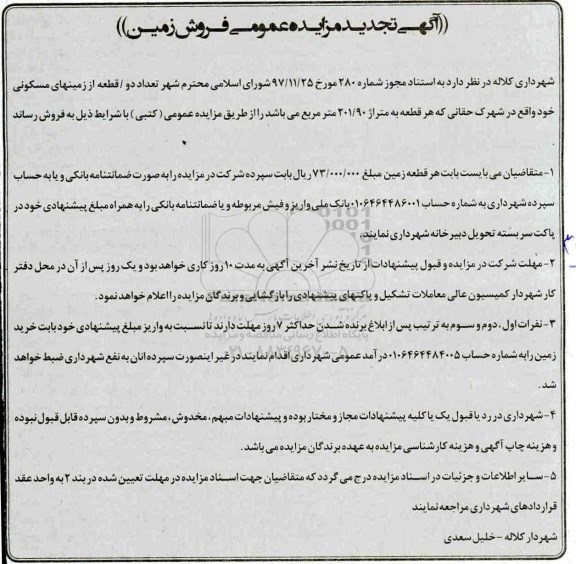 ((آگهی تجدید مزایده عمومی فروش زمین))
شهرداری کلاله در نظر دارد به استناد مجوز شماره ۲۸۰ مورخ ۹۷/۱۱/۲۵ شورای اسلامی محترم شهر تعداد دو / قطعه از زمینهای مسکونی
خود واقع در شهرک حقانی که هر قطعه به متراژ ۲۰۱/۹۰ متر مربع می باشد را از طریق مزایده عمومی ( کتبی ) با شرایط ذیل به فروش رساند
۱- متقاضیان می بایست بابت هر قطعه زمین مبلغ ۷۳/۰۰۰/۰۰۰ ریال بابت سپرده شرکت در مزایده را به صورت ضمانتنامه بانکی و یا به حساب
سپرده شهرداری به شماره حساب ۰۱۰۶۴۶۴۴۸۶۰۰۱ بانک ملی واریز و فیش مربوطه و یا ضمانتنامه بانکی را به همراه مبلغ پیشنهادی خود در
پاکت سر بسته تحویل دبیرخانه شهرداری نمایند.
۲- مهلت شرکت در مزایده و قبول پیشنهادات از تاریخ نشر آخرین آگهی به مدت ۱۰ روز کاری خواهد بود و یک روز پس از آن در محل دفتر
کار شهردار کمیسیون عالی معاملات تشکیل و پاکتهای پیشنهادی را بازگشایی و برندگان مزایده را اعلام خواهد نمود.
۳- نفرات اول ، دوم و سوم به ترتیب پس از ابلاغ برنده شدن حداکثر ۷ روز مهلت دارند تا نسبت به واریز مبلغ پیشنهادی خود بابت خرید
زمین را به شماره حساب ۰۱۰۶۴۶۴۴۸۴۰۰۵ در آمد عمومی شهرداری اقدام نمایند در غیر اینصورت سپرده انان به نفع شهرداری ضبط خواهد
شد.
۴- شهرداری در رد یا قبول یک یا کلیه پیشنهادات مجاز و مختار بوده و پیشنهادات مبهم ، مخدوش ، مشروط و بدون سپرده قابل قبول نبوده
و هزینه چاپ آگهی و هزینه کارشناسی مزایده به عهده برندگان مزایده می باشد.
۵- سایر اطلاعات و جزئیات در اسناد مزایده درج می گردد که متقاضیان جهت اسناد مزایده در مهلت تعیین شده در بند ۲ به واحد عقد
قراردادهای شهرداری مراجعه نمایند
شهردار کلاله - خلیل سعدی